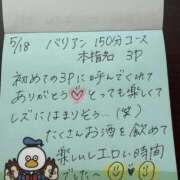 5/18 バリアン 150分コース
本指名 3P
初めての3Pに呼んでくれて
ありがとう とっても楽しくて
レズにはまりそう…(笑)
たくさんお酒を飲めて
楽しいしエロい時間
でした〜